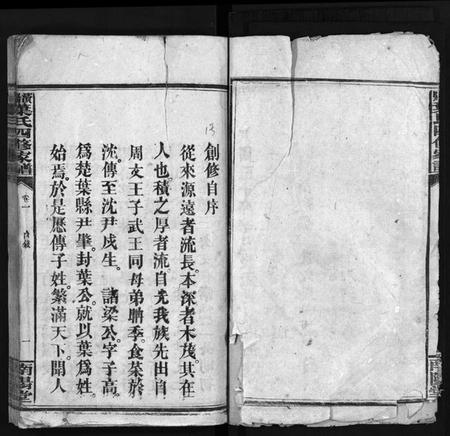 創修自序
從來源遠者流長。本深者木茂。其在
人也。積之厚者流自光。我族先出自
周文王子武王同母弟聃季。食菜於
沈。傳至沈尹戌生。諸梁公。字子高。
爲楚葉縣尹。肇封葉公。就以葉爲姓。
始焉。於是歷傳子姓。繁滿天下。聞人
葉氏四修家譜
卷一
一
南陽堂